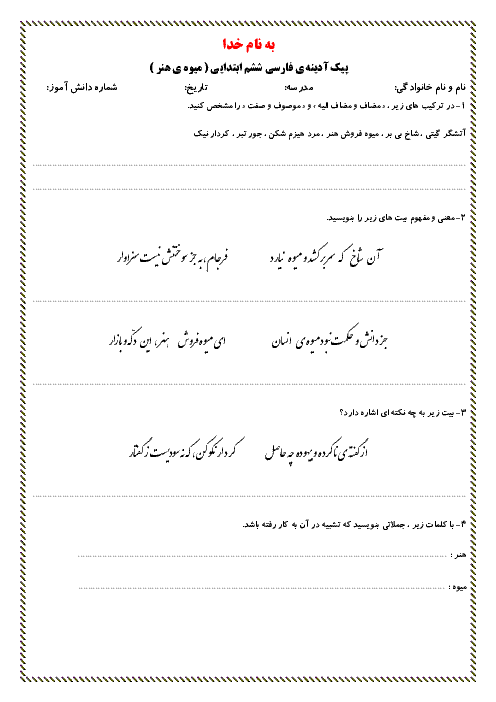 به نام خدا
پیک آدینه ی فارسی ششم ابتدایی ( میوه ی هنر )
نام و نام خانوادگی: مدرسه: تاریخ: شماره دانش آموز:
۱- در ترکیب های زیر ، «مضاف و مضاف الیه » و « موصوف و صفت » را مشخص کنید.
آتشگر گیتی ، شاخ بی بر ، میوه فروش هنر ، مرد هیزم شکن ، جور تبر ، کردار نیک
۲- معنی و مفهوم بیت های زیر را بنویسید.
آن شاخ که سر بر کشد و میوه نیارد فرجام، به جز سوختنش نیست سزاوار
جز دانش و حکمت نبود میوه ی انسان ای میوه فروش هنر، این دکّه و بازار
۳- بیت زیر به چه نکته ای اشاره دارد؟
از گفته ی ناکرده و بیهوده چه حاصل کردار نکو کن، که نه سودیست ز گفتار
۴- با کلمات زیر ، جملاتی بنویسید که تشبیه در آن به کار رفته باشد.
هنر :
میوه :